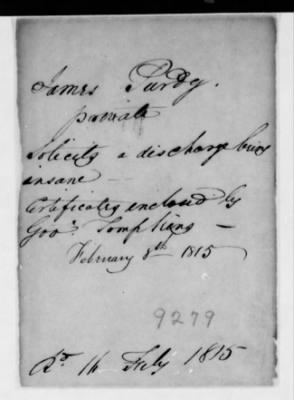 James Purdy.
private
Solicits a discharge being
insane —
Certificates enclosed by
Gov.r Tompkins —
February 8th 1815
9279
Rd 16 Feby 1815